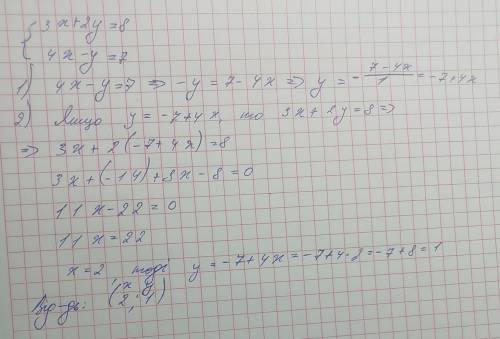 { 3x+2y=8
4x-y=7
1) 4x-y=7 ⇒ -y=7-4x ⇒ y = -\frac{7-4x}{1} = -7+4x
2) Якщо y=-7+4x, то 3x+2y=8 ⇒
⇒ 3x+2(-7+4x)=8
3x+(-14)+8x-8=0
11x-22=0
11x=22
x=2 тоді y=-7+4x=-7+4·2=-7+8=1
x y
Від-дь: (2; 1)